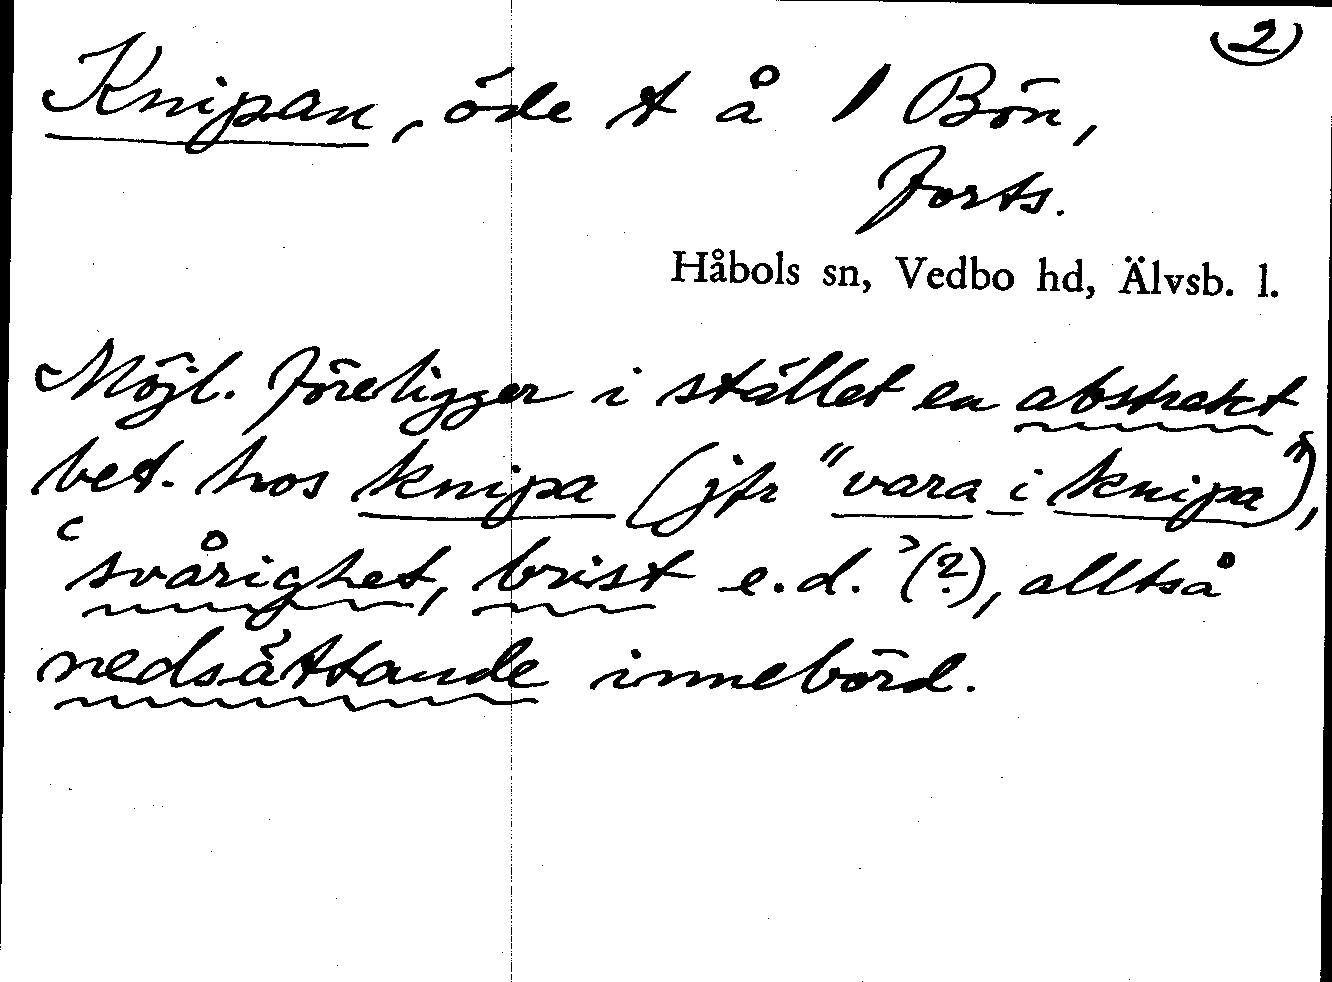 2
Knipan, öde t å 1 Bön,
Forts.
Håbols sn, Vedbo hd, Älvsb. l.
Möjl. föreligger i stället en abstrakt
bet. hos knipa (jfr "vara i knipa"),
‘svårighet, brist e.d.’ (?), alltså
nedsättande innebörd.